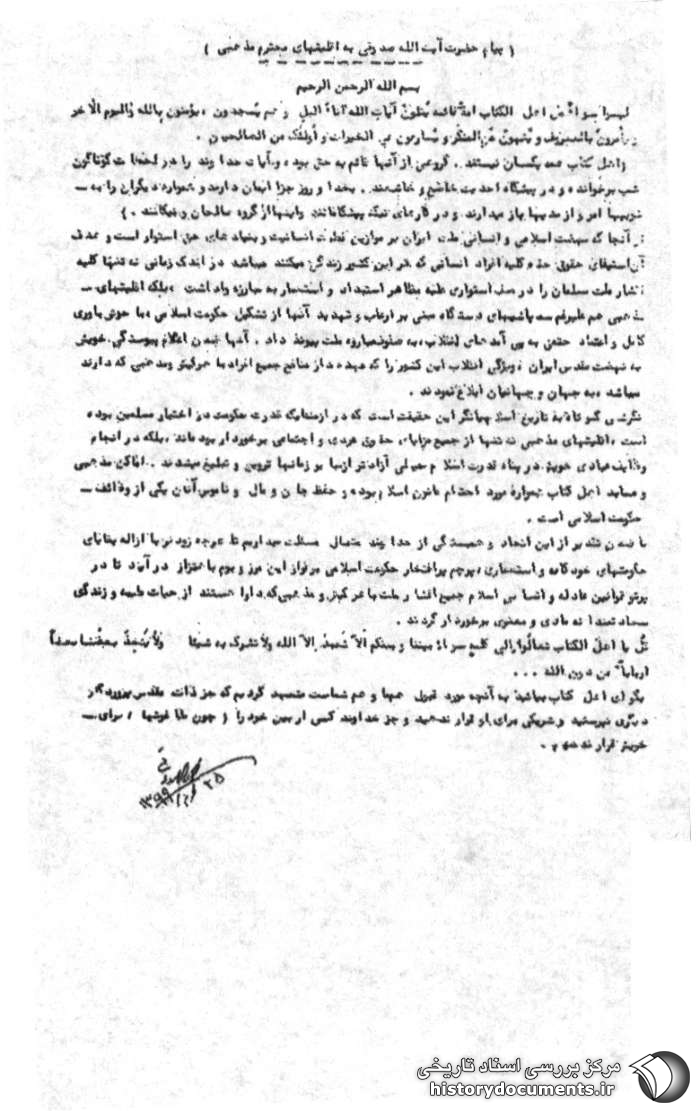 ( پیام حضرت آیت الله صدوقی به اقلیتهای محترم مذهبی )
بسم الله الرحمن الرحیم
لیسوا سواءً من اهل الکتاب امة قائمة یتلون آیات الله آناء اللیل و هم یسجدون ، یؤمنون بالله والیوم الاخر
و یأمرون بالمعروف و ینهون عن المنکر و یسارعون فی الخیرات و اولئک من الصالحین .
( اهل کتاب همه یکسان نیستند . گروهی از آنها قائم به حق بوده و آیات خدا وند را در لحظات گوناگون
شب برخوانده و در پیشگاه احدیت خاضع و خاشعند . بخدا و روز جزا ایمان دارند و همواره دیگران را به ــ
خوبیها امر و از بدیها باز میدارند و در کارهای نیک پیشگامانند و اینها از گروه صالحان و نیکانند . )
از آنجا که نهضت اسلامی و انسانی ملت ایران بر موازین انسانیت و بنیاد های حق استوار است و هدف
آن استیفای حقوق حقه کلیه افراد انسانی که در این کشور زندگی میکنند میباشد در اندک زمانی نه تنها کلیه
اقشار ملت مسلمان را در صف استواری علیه مظاهر استبداد و استعمار به مبارزه واداشت ، بلکه اقلیتهای ــ
مذهبی هم علیرغم سمپاشیهای دستگاه مبنی بر ارعاب و تهدید آنها از تشکیل حکومت اسلامی ، با خوش باوری
کامل و اعتماد به پی آمدهای انقلاب ، به صفوف مبارزه ملت پیوند داد . آنها ضمن اعلام پیوستگی خویش
به نهضت مقدس ایران ، ویژگی انقلاب این کشور را که دفاع از منافع جمیع افراد با هرکیش و مذهبی که دارند
میباشد ، به جهان و جهانیان ابلاغ نمودند .
نگرشی کوتاه به تاریخ اسلام بیانگر این حقیقت است که در ازمنه‌ایکه قدرت حکومت در اختیار مسلمین بوده
است ، اقلیتهای مذهبی نه تنها از جمیع مزایای حقوق فردی و اجتماعی برخوردار بوده‌اند ، بلکه در انجام
وظایف عبادی خویش در پناه قدرت اسلام خیلی آزادتر از سایر زمانها ترویج و تبلیغ مینمودند . اماکن مذهبی
و معابد اهل کتاب همواره مورد احترام قانون اسلام بوده و حفظ جان و مال و ناموس آنان یکی از وظائف ــ
حکومت اسلامی است .
ما ضمن تقدیر از این اتحاد و همبستگی از خدا وند متعال مسئلت میداریم تا هرچه زودتر با ازاله بقایای
حکومتهای خودکامه و استعماری ، پرچم پرافتخار حکومت اسلامی بر فراز این مرز و بوم باهتزاز در آید تا در
پرتو قوانین عادله و انسانی اسلام جمیع اقشار ملت با هرکیش و مذهبی که دارا هستند از حیات طیبه و زندگی
سعادتمندانه مادی و معنوی برخوردار گردند .
قل یا اهل الکتاب تعالوا الی کلمة سواء بیننا و بینکم الا نعبد الا الله ولا نشرک به شیئا ولا یتخذ بعضنا بعضاً
ارباباً من دون الله . . .
بگو ای اهل کتاب بیائید به آنچه مورد قبول ما و هم شماست متعهد گردیم که جز ذات مقدس پروردگار
دیگری نپرستید و شریکی برای او قرار ندهید و جز خداوند کسی از بین خود را ( چون طاغوتها ) برای ــ
خویش قرار ندهیم .
صدوقی
مرکز بررسی اسناد تاریخی
historydocuments.ir